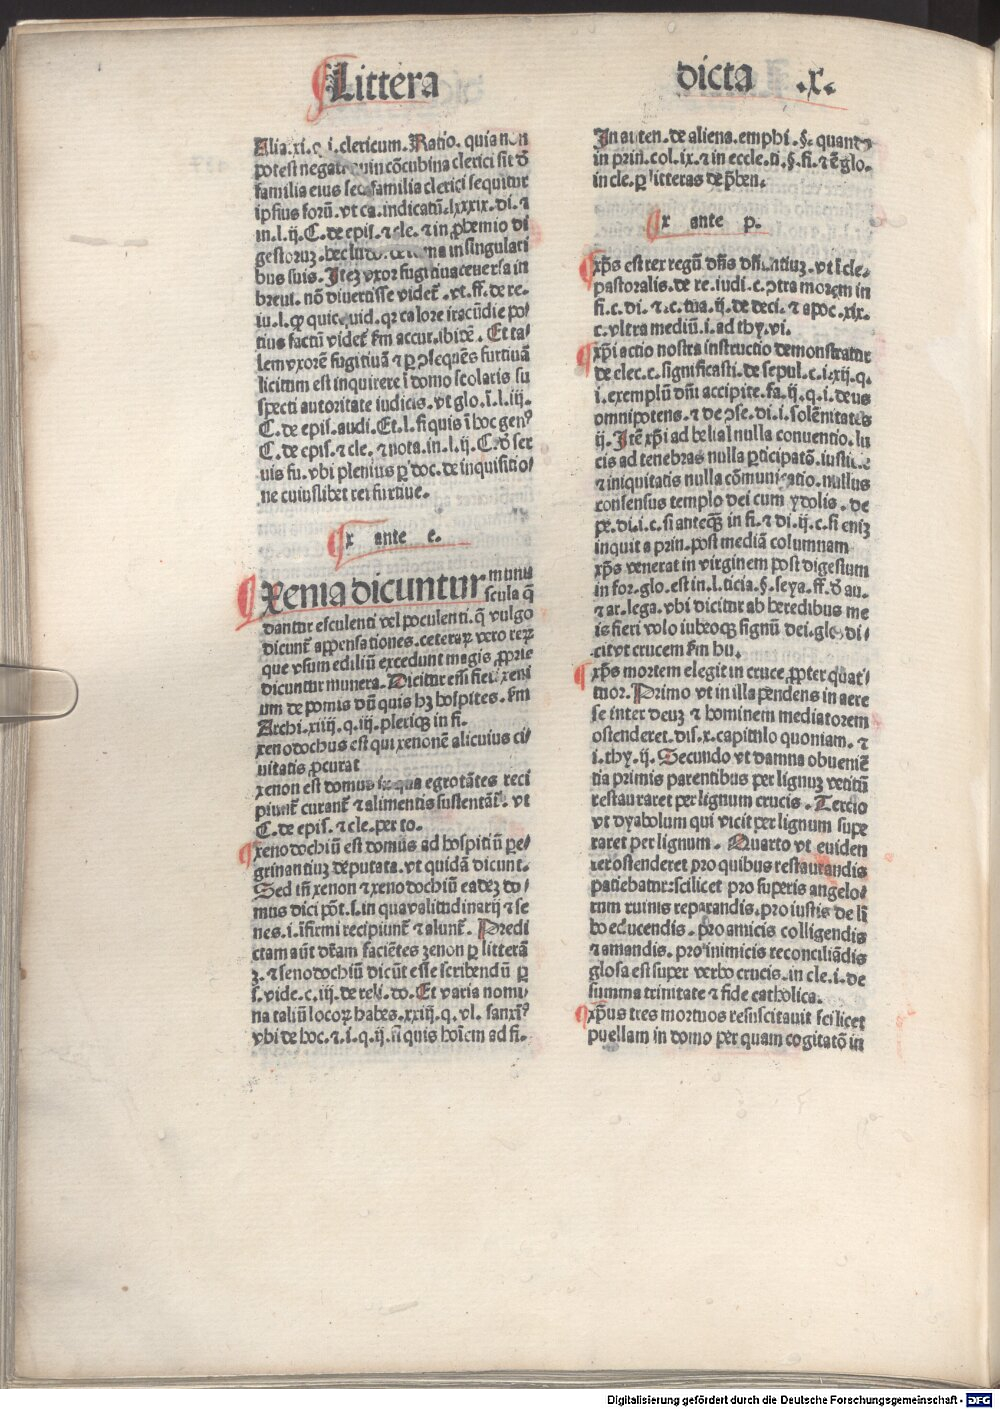 Littera dicta .X.
Alia.xi.q.i.clericum.Ratio.quia non
potest negari quin cōcubina clerici sit d̄
familia eius sed familia clerici sequitur
ipsius forū.vt ca.indicatū.lxxxix.di.⁊
in.l.ij.C.de epis.⁊ cle.⁊ in ꝓhemio di
gestoruꝫ.hec
bus suis.Iteꝫ vxor fugitiua reuersa in
breui.nō diuertisse videt᷑.vt.ff.de re⸗
iu.l.qꝙ quicquid.qꝛ calore iracūdie po⸗
tius factū videt᷑ ẜm accur.ibidē.Et ta⸗
lem vxorē fugitiuā ⁊ ꝑ ↄ̨sequēs furtiuā
licitum est inquirere ī domo scolaris su
specti autoritate iudicis.vt glo.ī.l.iii.
C.de epis.audi.Et.l.si quis ī hoc genꝰ
C.de epis.⁊ cle.⁊ nota.in.l.ij.C.d̄ ser
uis fu.vbi plenius ꝑ doc.de inquisitio⸗
ne cuiuslibet rei furtiue.
x ante e.
Xenia dicuntur munu
scula q̄
dantur esculenti vel poculenti.q̄ vulgo
dicunt᷑ appensationes.ceteraꝝ vero reꝝ
que vsum ediliū excedunt magis ꝓprie
dicuntur munera.Dicitur esse fieri xeni
um de pomis dū quis hꝫ hospites.ẜm
Archi.xiiij.q.iij.pleriqꝫ in fi.
xenodochus est qui xenonē alicuius ci⸗
uitatis ꝓcurat
xenon est domus in qua egrotātes reci
piunt᷑ curant᷑ ⁊ alimentis sustentāt᷑.vt
C.de epis.⁊ cle.per to.
xenodochiū est domus ad hospitiū ꝑe⸗
grinantiuꝫ deputata.vt quidā dicunt.
Sed tn̄ xenon ⁊ xenodochiū eadeꝫ do⸗
mus dici pōt.s.in qua valitudinarij ⁊ se
nes.i.īfirmi recipiunt᷑ ⁊ alunt᷑.Predi
ctam aūt dr̄am faciētes ʒenon ꝑ litterā
ʒ.⁊ senodochiū dicūt esse scribendū ꝑ
s.vide.c.iij.de reli.do.Et varia nomi⸗
na taliū locoꝝ habes.xxiij.q.vl.sanxīꝰ
vbi de hoc.⁊.i.q.ij.si quis hoīem ad fi.
In auten.de aliena.emphi.§.quando
in prin.col.ix.⁊ in eccle.ti.§.fi.⁊ ē glo.
in cle.ꝑ litteras de p̄ben.
x ante p.
xp̄s est rex regū dn̄s dn̄antiuꝫ.vt ī cle.
pastoralis.de re.iudi.c.ↄ̨tra morem in
fi.c.di.⁊.c.tua.ij.de deci.⁊ apoc.xix.
c.vltra mediū.i.ad thy.vi.
xp̄i actio nostra instructio demonstratur
de elec.c.significasti.de sepul.c.i.xij.q.
i.exemplū dn̄i accipite.fa.ij.q.i.deus
omnipotens.⁊ de ↄ̨se.di.i.solēnitates
ij.Itē xp̄i ad belial nulla conuentio.lu
cis ad tenebras nulla ꝑticipatō.iusticie
⁊ iniquitatis nulla cōmunicatio.nullus
consensus templo dei cum ydolis.de
pe.di.i.c.si anteqꝫ in fi.⁊ di.ij.c.si eniꝫ
inquit a prin.post mediā columnam
xp̄s venerat in virginem post digestum
in for.glo.est in.l.ticia.§.seya.ff.d̄ au.
⁊ ar.lega.vbi dicitur ab heredibus me
is fieri volo iubeoqꝫ signū dei.glo di⸗
citur crucem ẜm hu.
xp̄s mortem elegit in cruce ꝓpter q̄uat⸗
tuor.Primo vt in illa pendens in aere
se inter deuꝫ ⁊ hominem mediatorem
ostenderet.dis.x.capitulo quoniam.⁊
i.thy.ij.Secundo vt damna obueniē
tia primis parentibus per lignuꝫ vetitū
restauraret per lignum crucis.Tercio
vt dyabolum qui vicit per lignum supe
raret per lignum.Quarto vt euiden
ter ostenderet pro quibus restaurandis
patiebatur:scilicet pro superis angelo⸗
rum ruinis reparandis.pro iustis de lī
bo educendis.pro amicis colligendis
⁊ amandis.pro inimicis reconciliādis
glosa est super verbo crucis.in cle.i.de
summa trinitate ⁊ fide catholica.
xp̄us tres mortuos resuscitauit scilicet
puellam in domo per quam cogitatō in
Digitalisierung gefördert durch die Deutsche Forschungsgemeinschaft - DFG